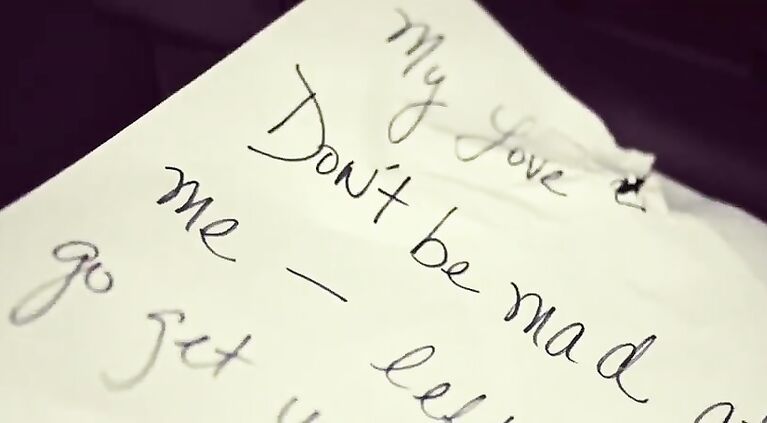 My Love
Don't be mad
me —
go get